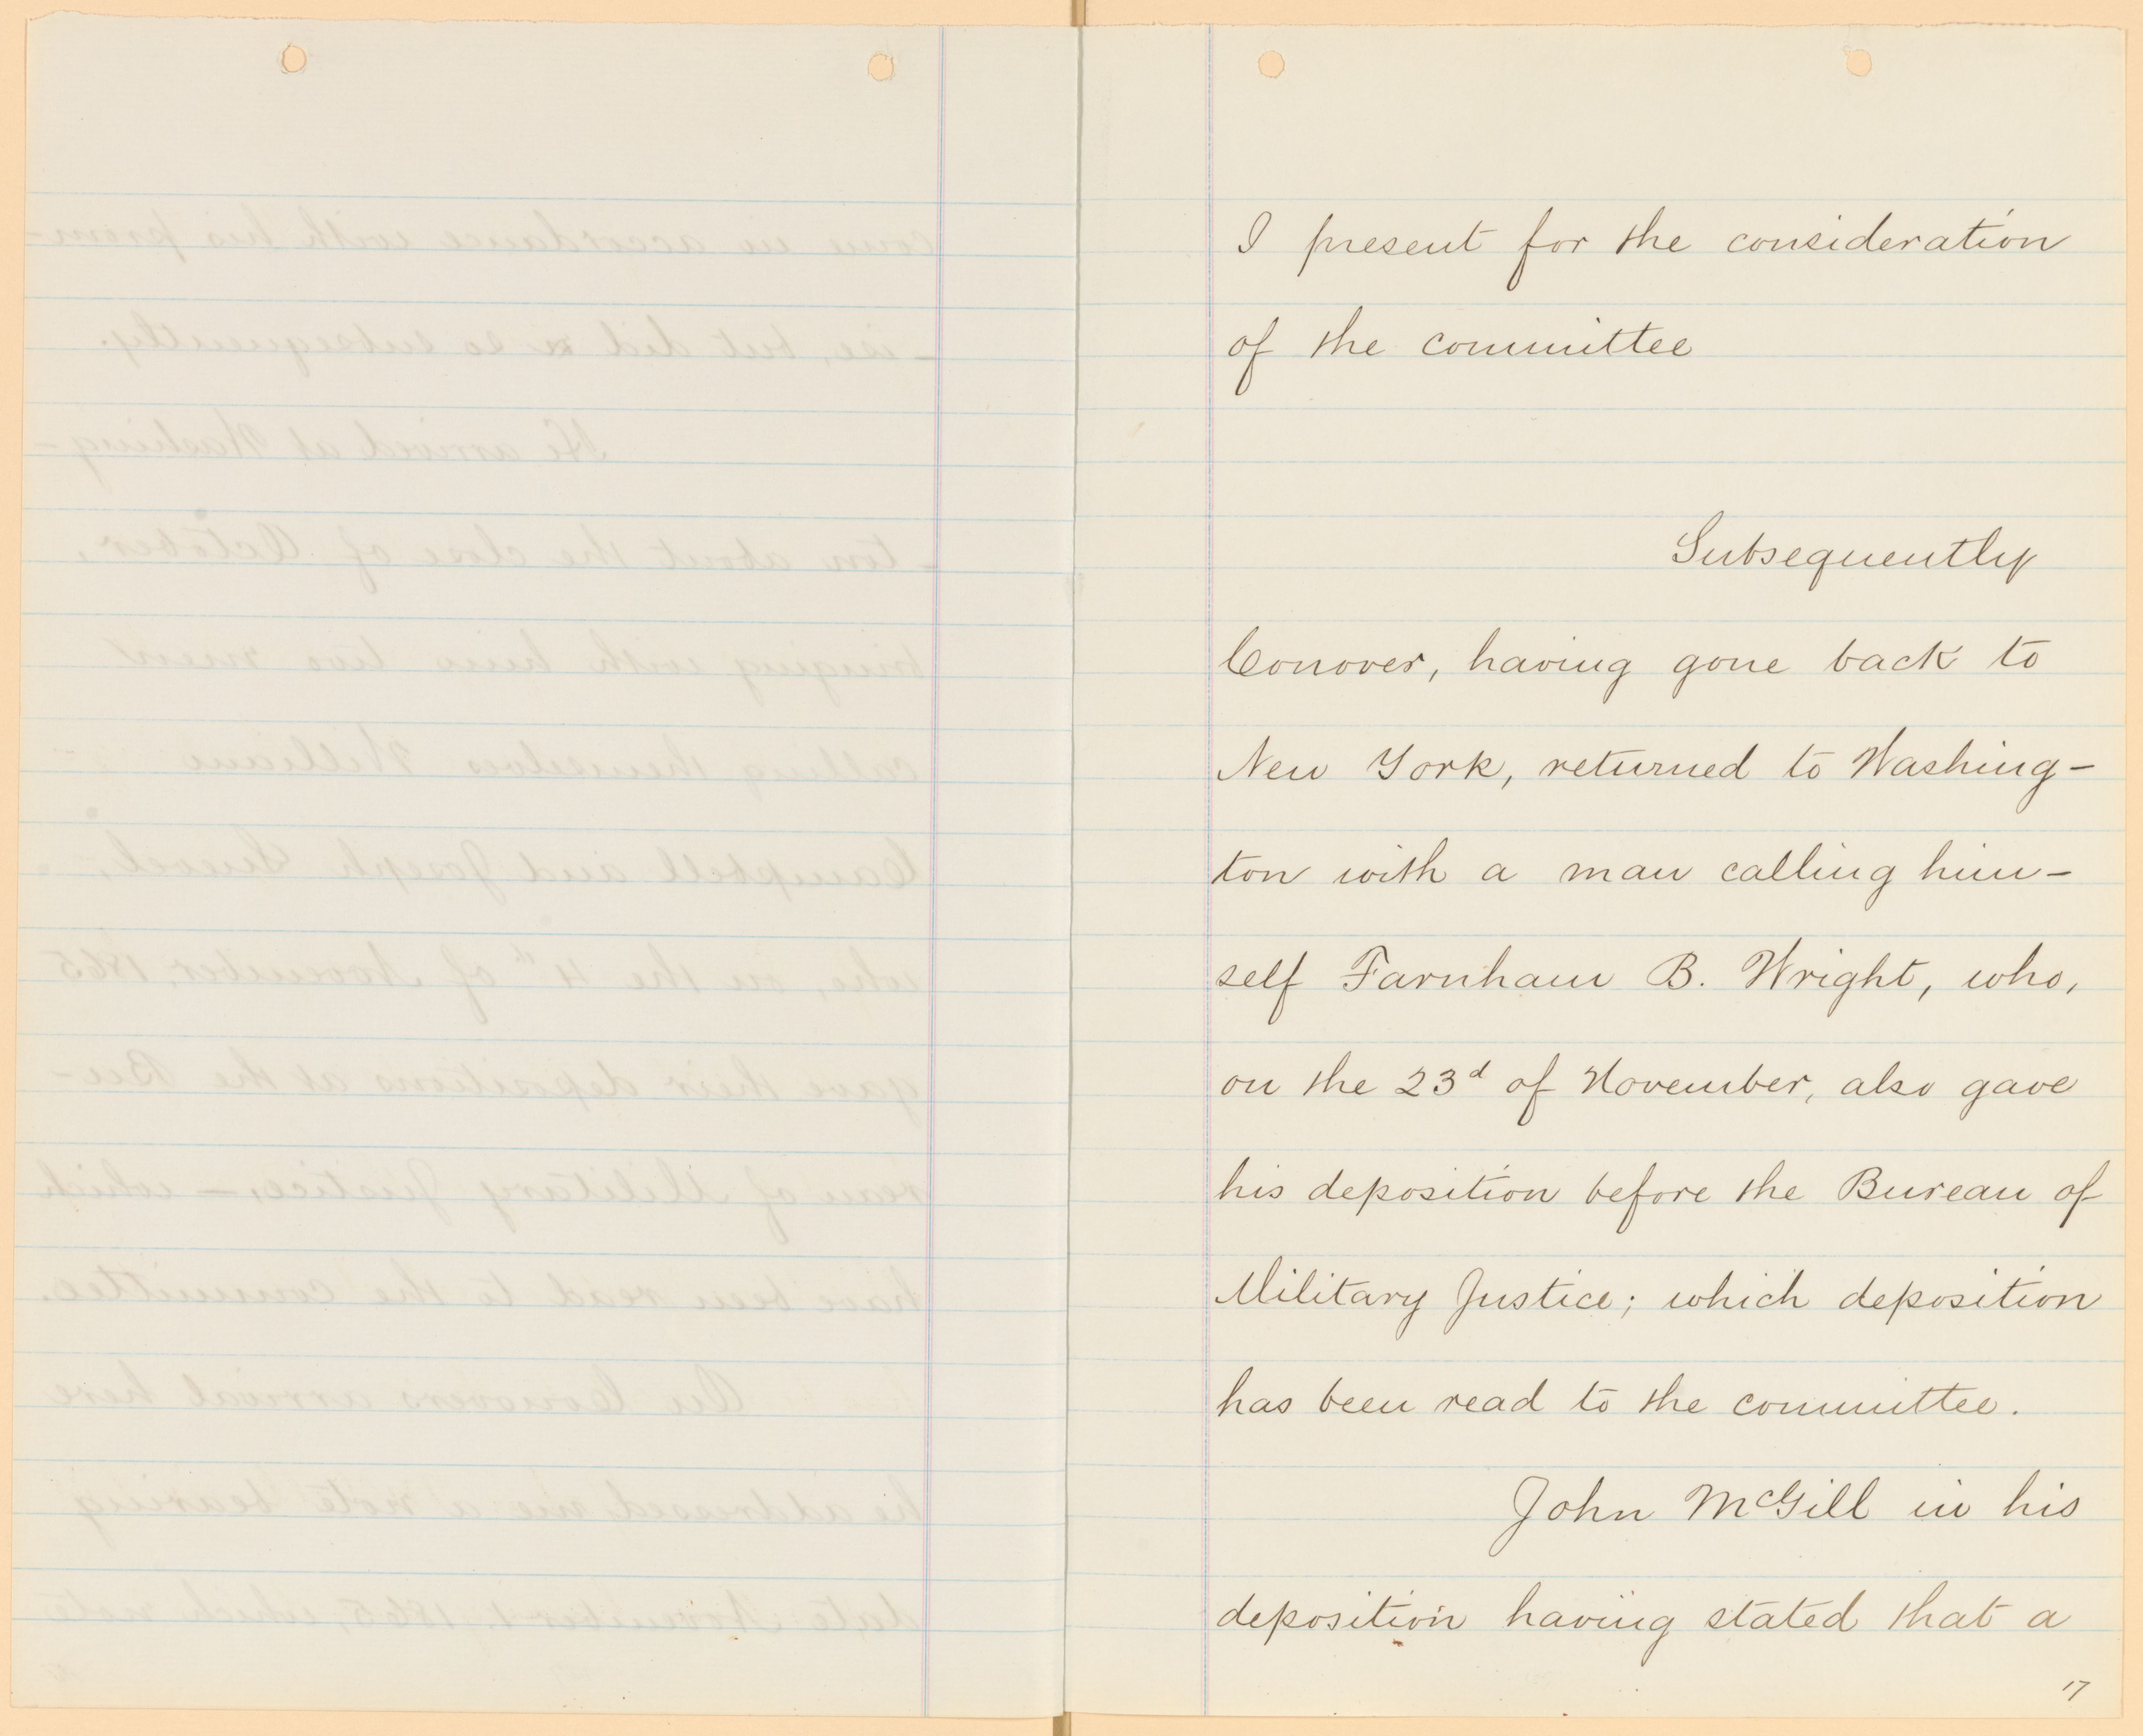 I present for the consideration
of the committee
Subsequently
Conover, having gone back to
New York, returned to Washing-
ton with a man calling him-
self Farnham B. Wright, who,
on the 23d of November, also gave
his deposition before the Bureau of
Military Justice; which deposition
has been read to the committee.
John McGill in his
deposition having stated that a
17